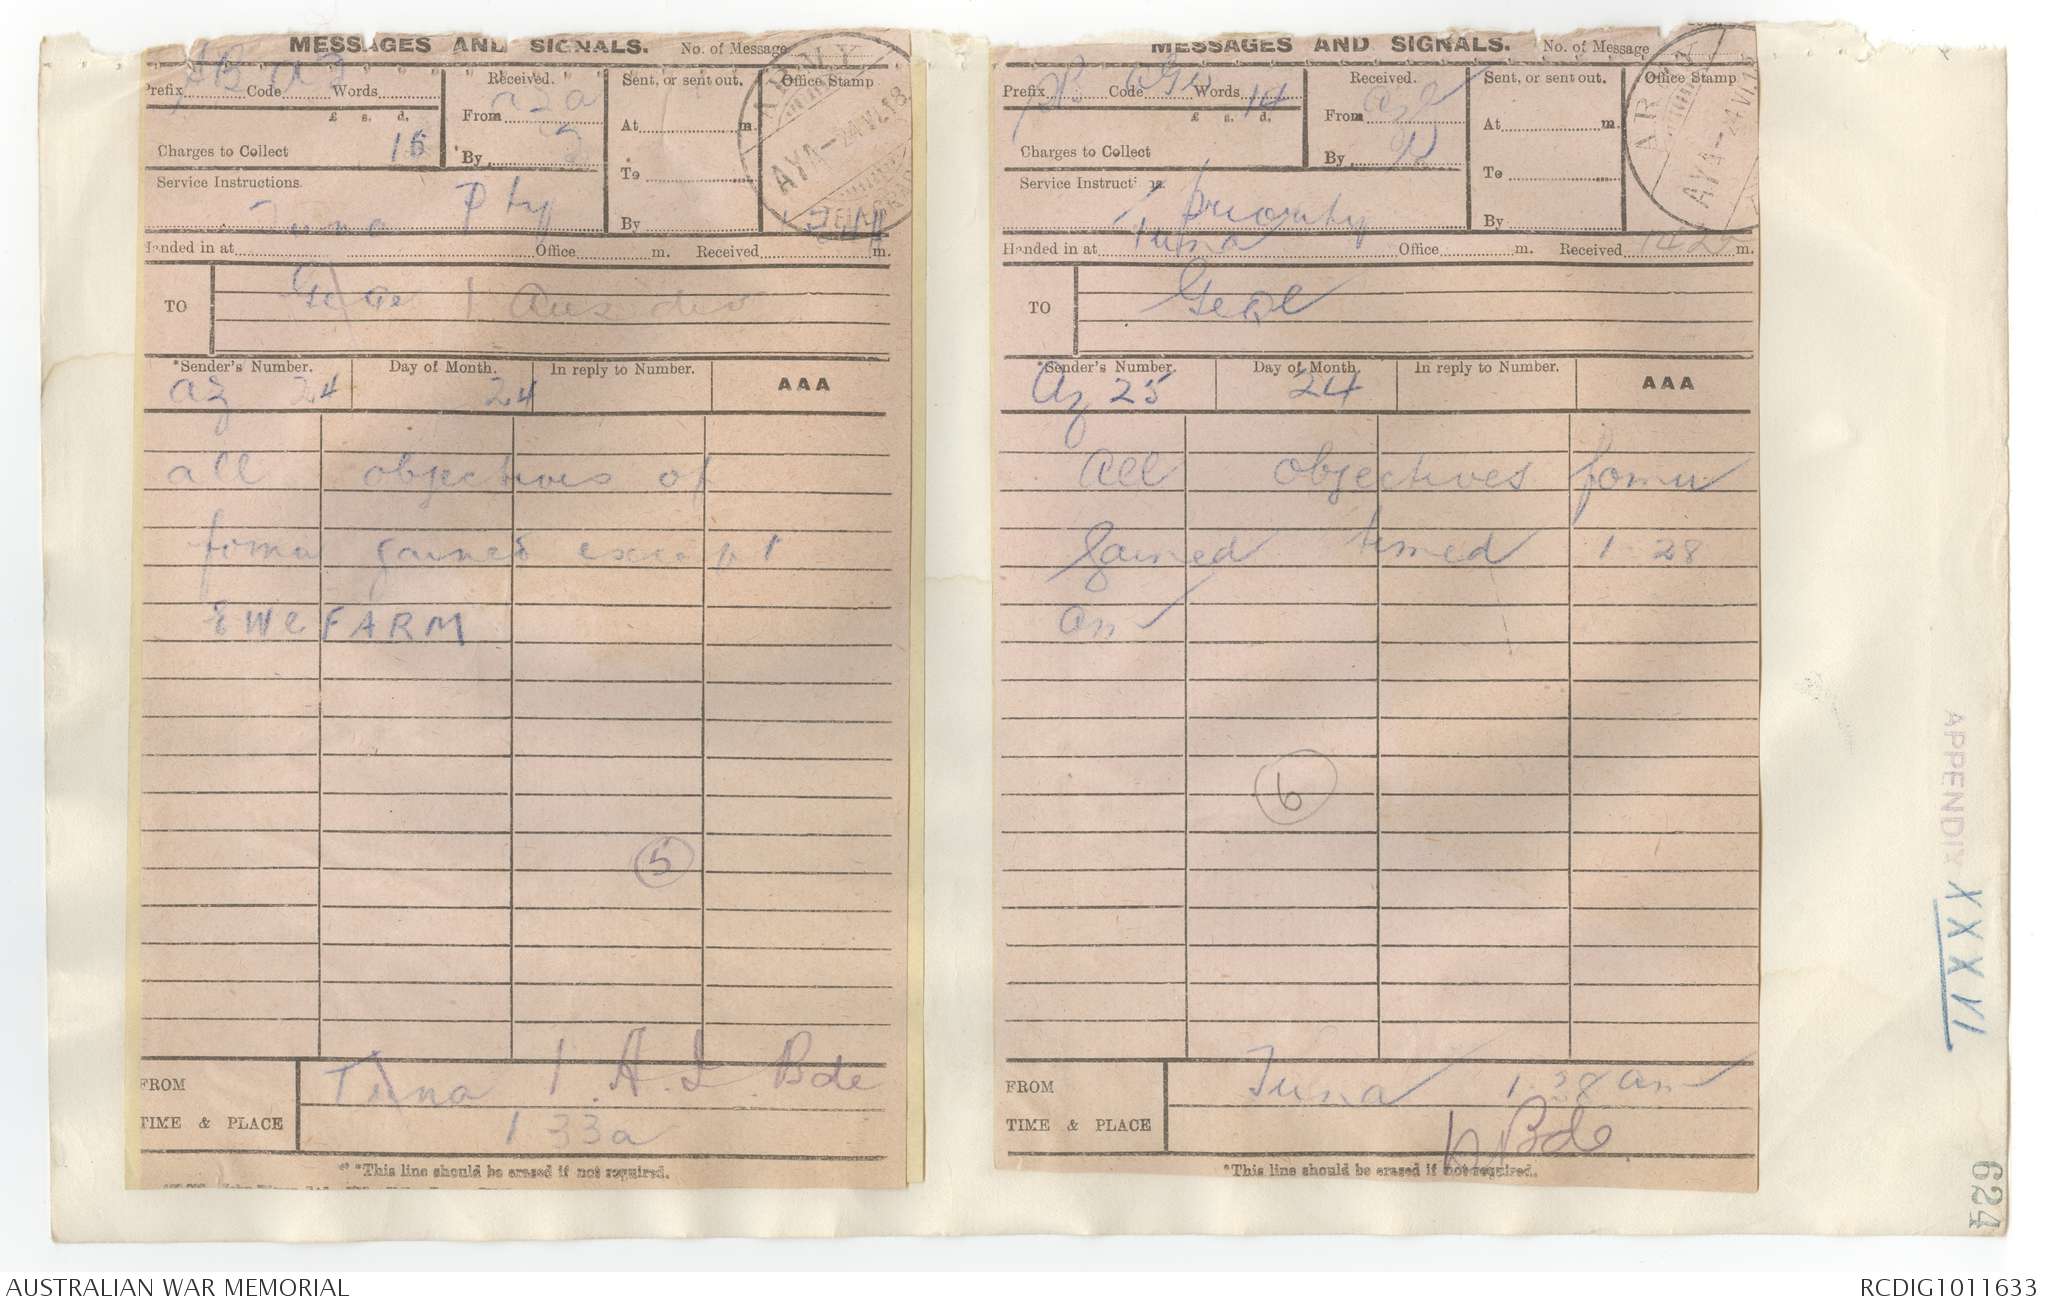 MESSAGES AND SIGNALS. No. of Message
Prefix Code Words
£ s. d.
Charges to Collect 16
Service Instructions.
Pty
Tuna
Received.
From
By
Sent, or sent out.
At m.
To
By
Office Stamp
ARMY
AYA - 24.VI.18
Handed in at Office m. Received m.
TO
1 Aus div
*Sender's Number. Day of Month. In reply to Number. AAA
az 24 24
all objectives of
fomu gained except
EWE FARM
5
FROM Tuna 1 A.I. Bde
TIME & PLACE 1 33a
*This line should be erased if not required.
MESSAGES AND SIGNALS. No. of Message
Prefix Code Words 14
£ s. d.
Charges to Collect
Service Instructions.
Priority
Tuna
Received.
From
By
Sent, or sent out.
At m.
To
By
Office Stamp
ARMY
AYA - 24.VI.18
Handed in at Office m. Received m.
TO
*Sender's Number. Day of Month. In reply to Number. AAA
Az 25 24
All objectives fomu
gained timed 1-28
am
6
FROM Tuna 1.28 am
TIME & PLACE Bde
*This line should be erased if not required.
APPENDIX XXXVI
624
AUSTRALIAN WAR MEMORIAL
RCDIG1011633